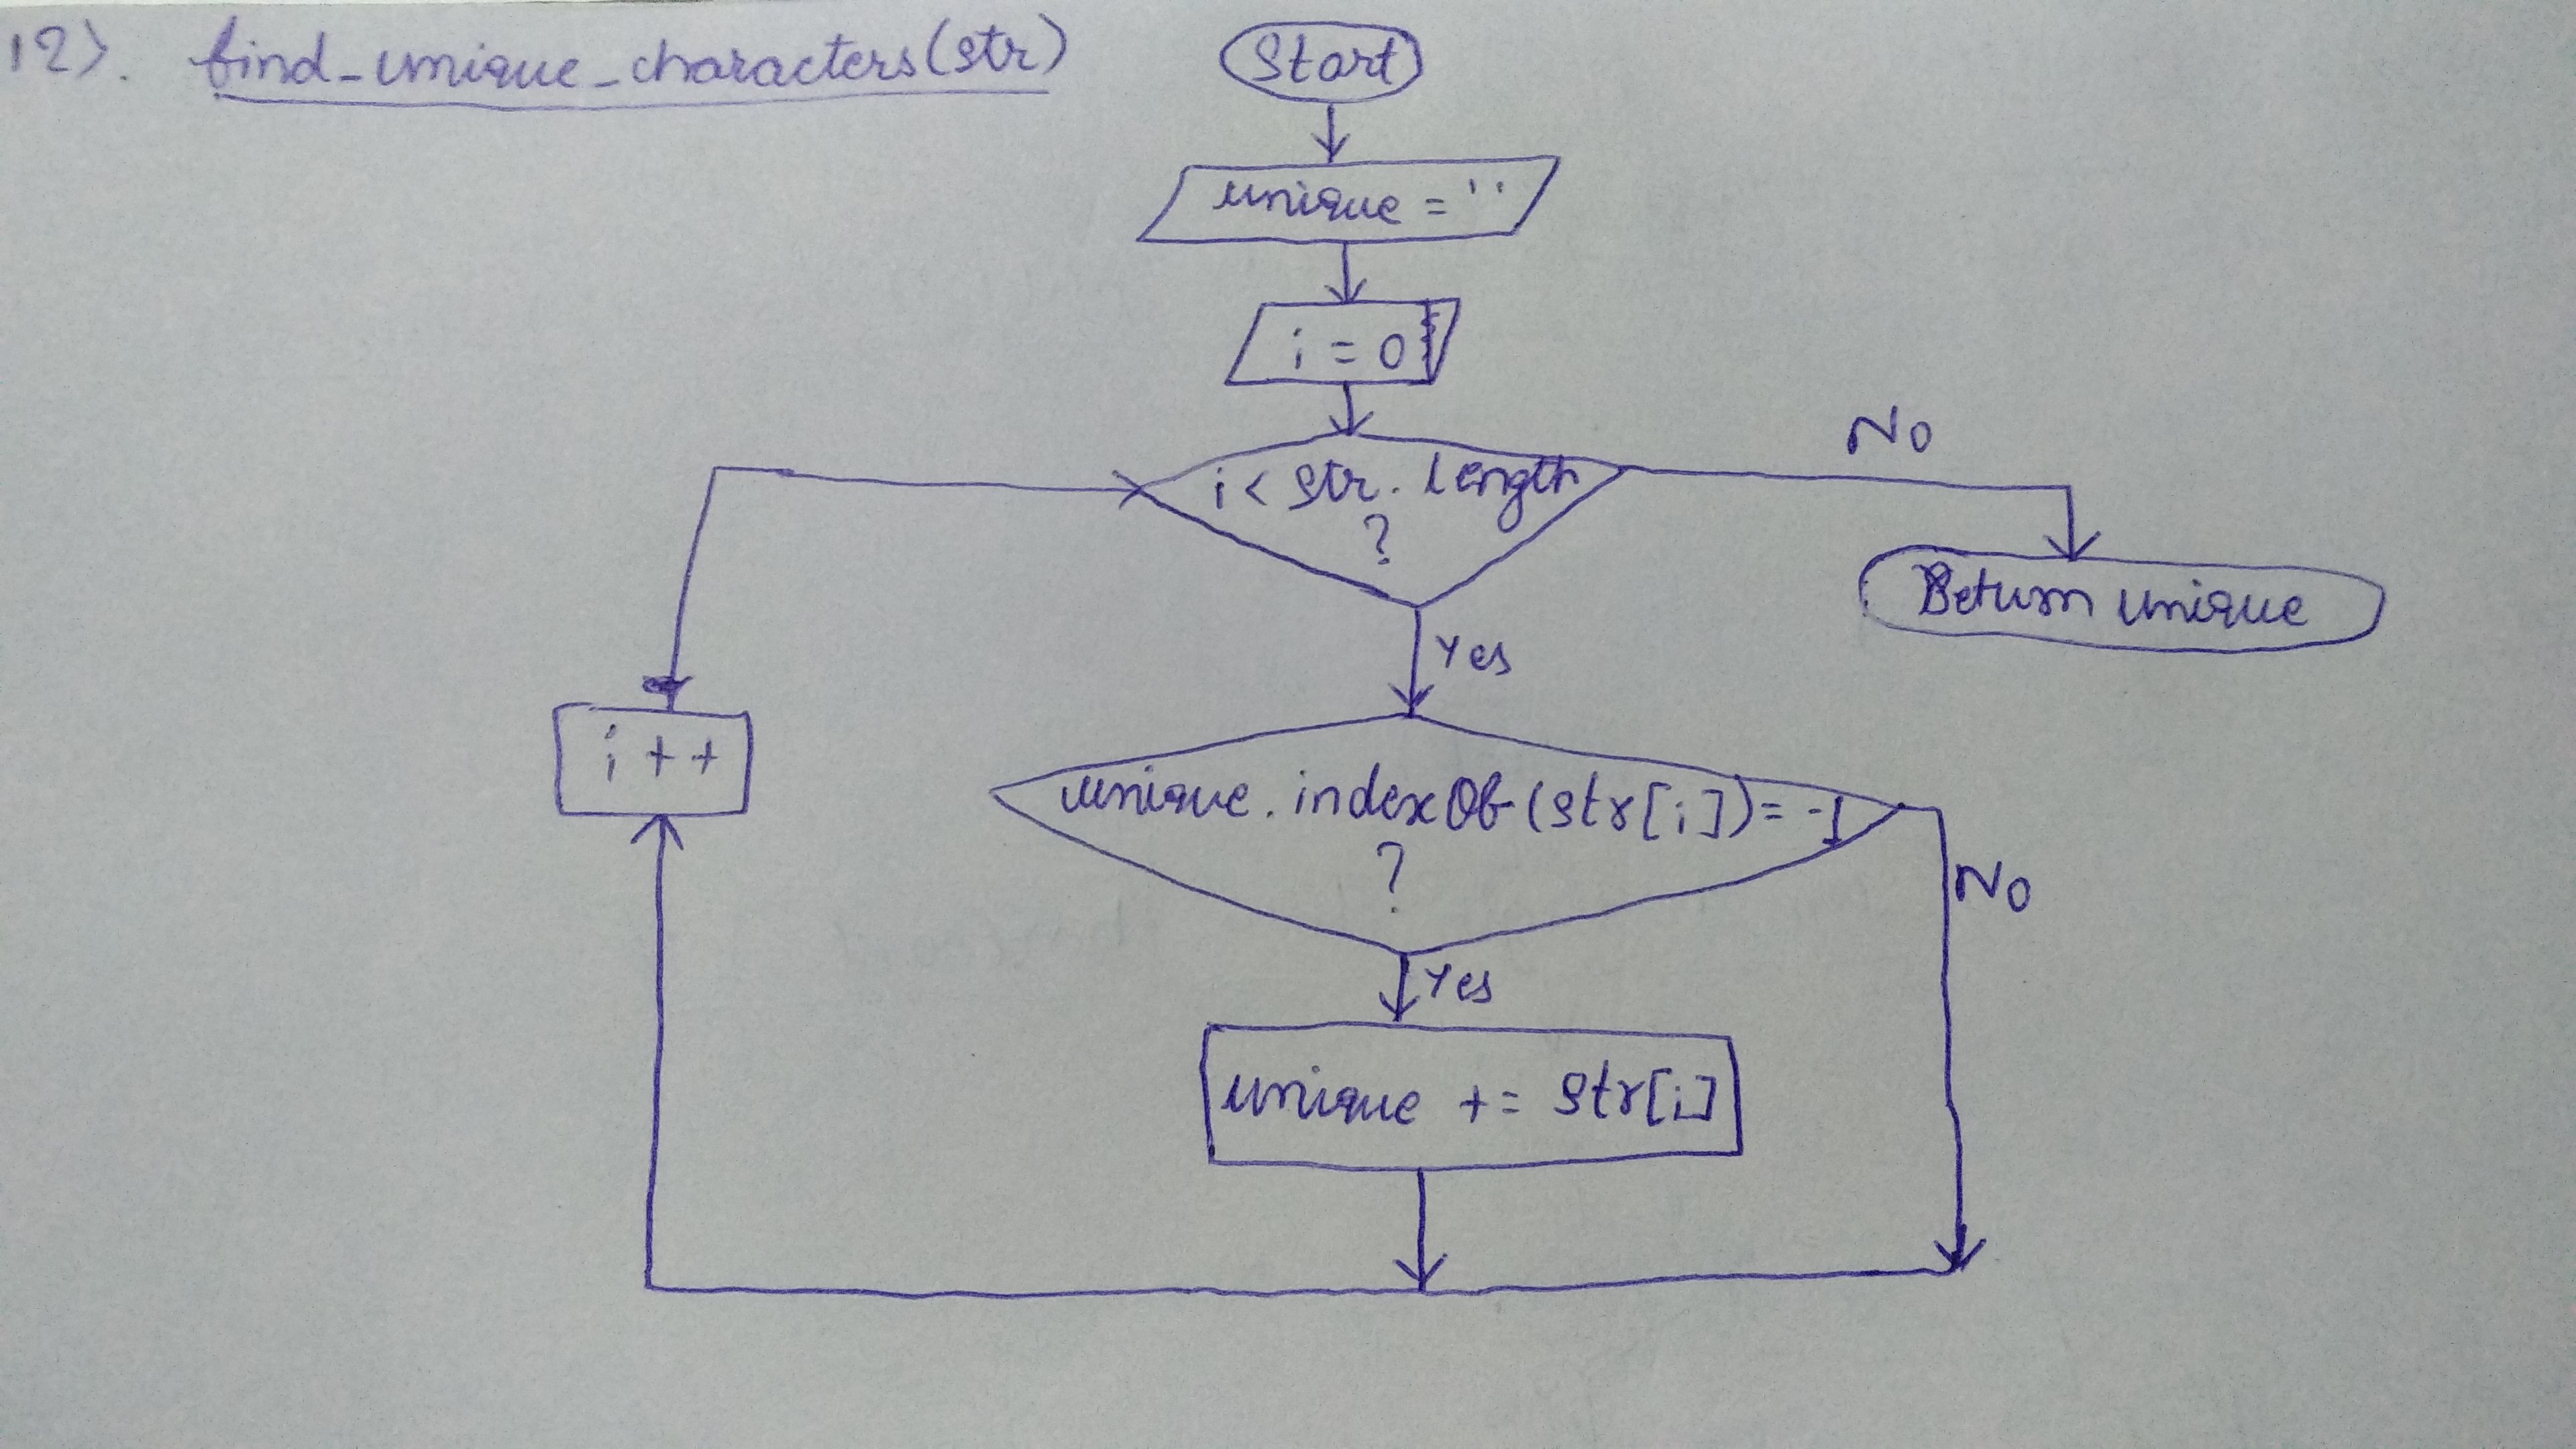 12). find_unique_characters(str)
Start
unique = ''
i = 0
i < str. length
?
No
Return unique
Yes
i ++
unique. indexOf (str[i]) = -1
?
No
Yes
unique += str[i]